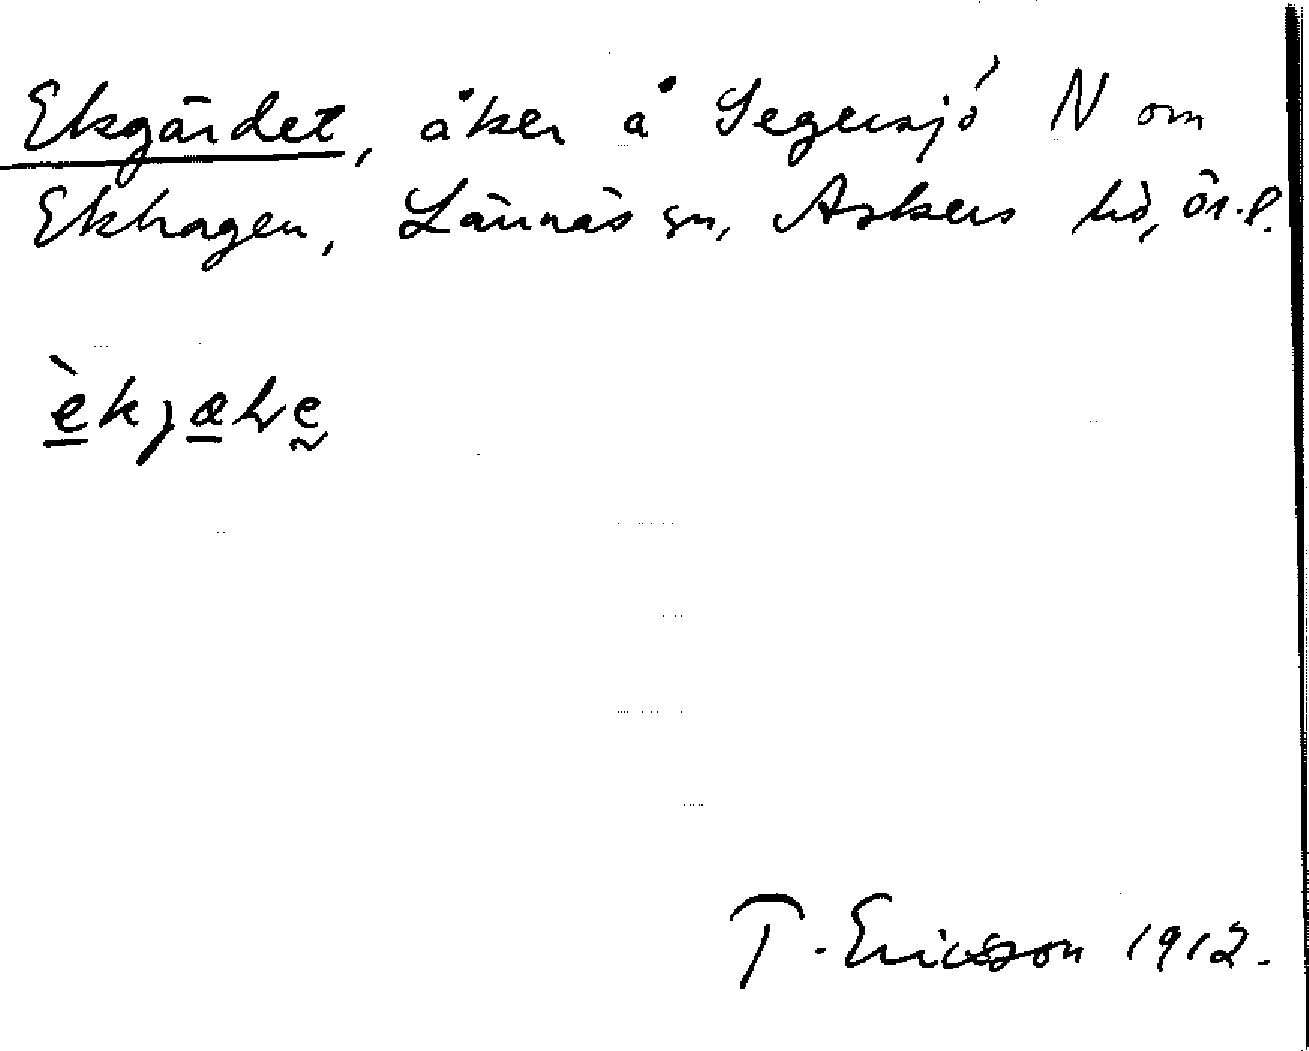 Ekgärdet, åker å Segersjö N om
Ekhagen, Lännäs sn, Askers hd, Ör. l.
T. Ericsson 1912.